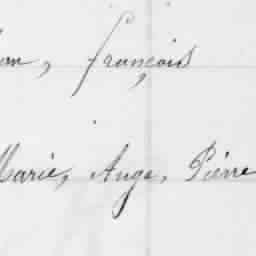 françois
Marie, Ange, Pierre